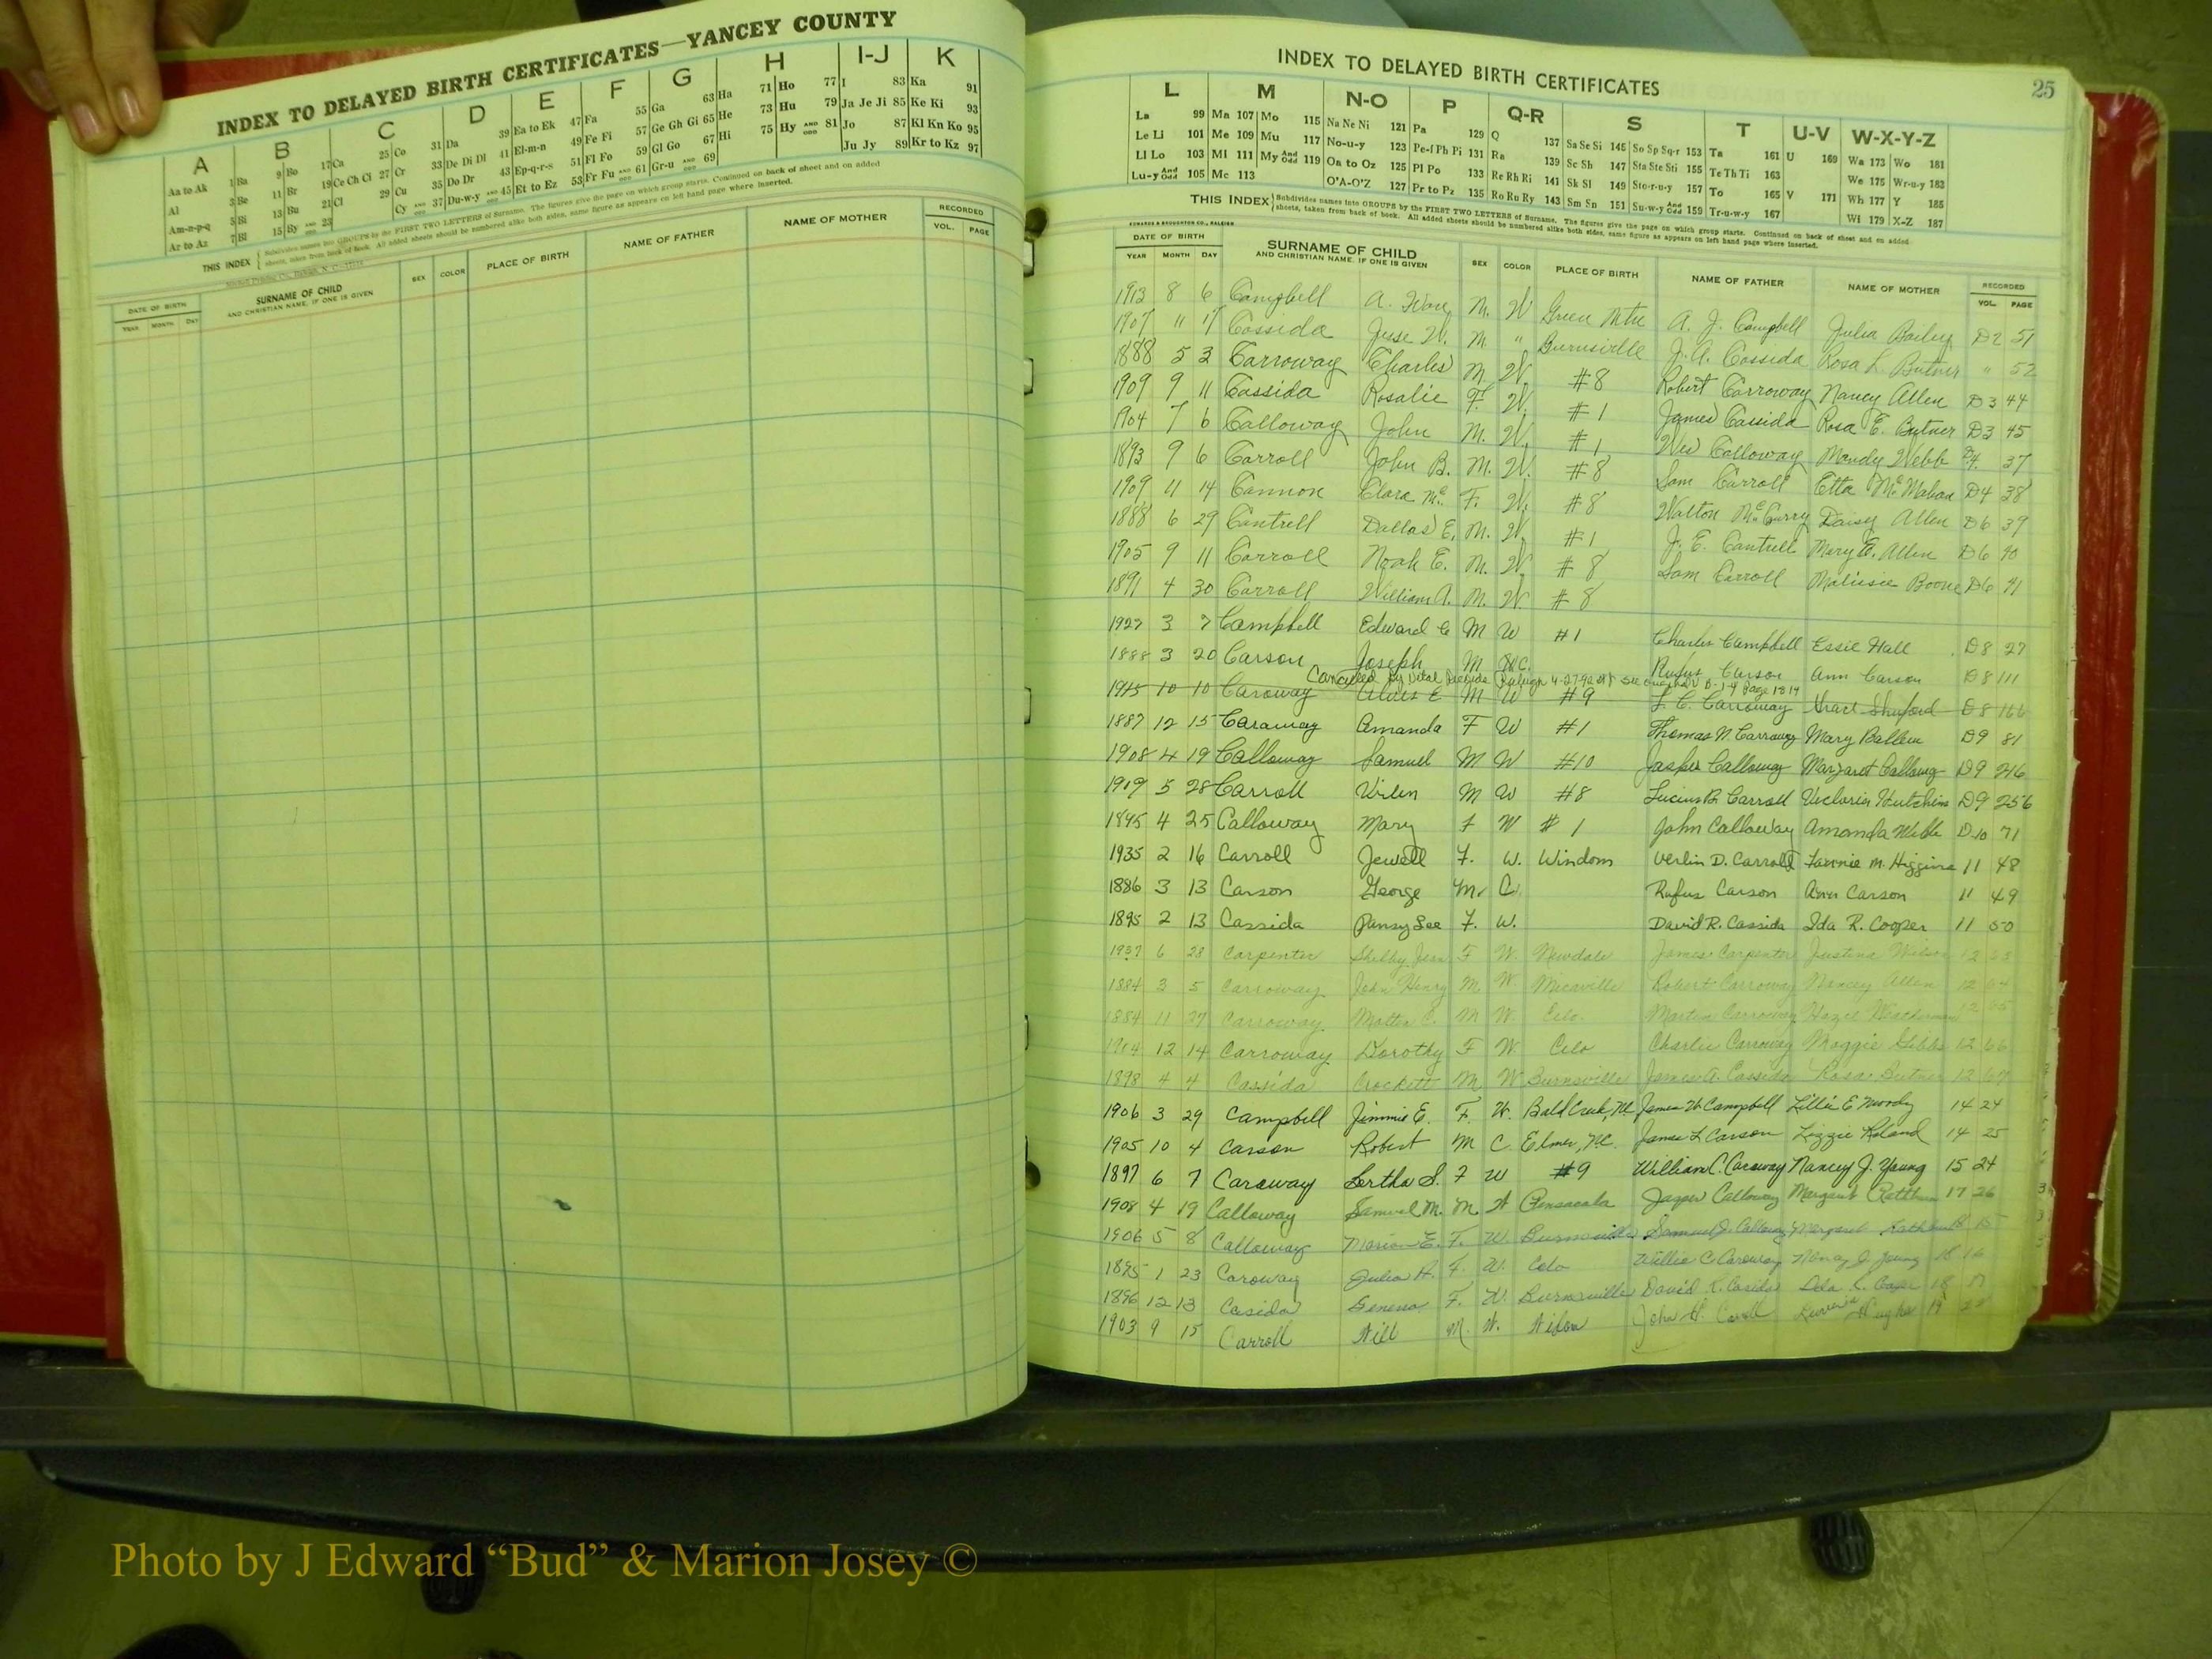 INDEX TO DELAYED BIRTH CERTIFICATES—YANCEY COUNTY
A B C D E F G H I-J K
Aa to Ak 1 Ba 9 Bo 17 Ca 25 Co 31 Da 39 Ea to Ek 47 Fa 55 Ga 63 Ha 71 Ho 77 I 83 Ka 91
Al 3 Be 11 Br 19 Ce Ch Ci 27 Cr 33 De Di Dl 41 El-m-n 49 Fe Fi 57 Ge Gh Gi 65 He 73 Hu 79 Ja Je Ji 85 Ke Ki 93
Am-n-p-q 5 Bi 13 Bu 21 Cl 29 Cu 35 Do Dr 43 Ep-q-r-s 51 Fl Fo 59 Gl Go 67 Hi 75 Hy AND ODD 81 Jo 87 Kl Kn Ko 95
Ar to Az 7 Bl 15 By AND ODD 23 Cy AND ODD 37 Du-w-y AND ODD 45 Et to Ez 53 Fr Fu AND ODD 61 Gr-u AND ODD 69 Ju Jy 89 Kr to Kz 97
THIS INDEX Subdivides names into GROUPS by the FIRST TWO LETTERS of Surname. The figures give the page on which group starts. Continued on back of sheet and on added
sheets, taken from back of book. All added sheets should be numbered alike both sides, same figure as appears on left hand page where inserted.
DATE OF BIRTH SURNAME OF CHILD SEX COLOR PLACE OF BIRTH NAME OF FATHER NAME OF MOTHER RECORDED
YEAR MONTH DAY AND CHRISTIAN NAME, IF ONE IS GIVEN VOL. PAGE
INDEX TO DELAYED BIRTH CERTIFICATES
25
L M N-O P Q-R S T U-V W-X-Y-Z
La 99 Ma 107 Mo 115 Na Ne Ni 121 Pa 129 Q 137 Sa Se Si 145 So Sp Sq-r 153 Ta 161 U 169 Wa 173 Wo 181
Le Li 101 Me 109 Mu 117 No-u-y 123 Pe-f Ph Pi 131 Ra 139 Sc Sh 147 Sta Ste Sti 155 Te Th Ti 163 We 175 Wr-u-y 183
Ll Lo 103 Mi 111 My And Odd 119 Oa to Oz 125 Pl Po 133 Re Rh Ri 141 Sk Sl 149 Sto-r-u-y 157 To 165 V 171 Wh 177 Y 185
Lu-y And Odd 105 Mc 113 O'A-O'Z 127 Pr to Pz 135 Ro Ru Ry 143 Sm Sn 151 Su-w-y And Odd 159 Tr-u-w-y 167 Wi 179 X-Z 187
THIS INDEX Subdivides names into GROUPS by the FIRST TWO LETTERS of Surname. The figures give the page on which group starts. Continued on back of sheet and on added
sheets, taken from back of book. All added sheets should be numbered alike both sides, same figure as appears on left hand page where inserted.
EDWARDS & BROUGHTON CO., RALEIGH
DATE OF BIRTH SURNAME OF CHILD SEX COLOR PLACE OF BIRTH NAME OF FATHER NAME OF MOTHER RECORDED
YEAR MONTH DAY AND CHRISTIAN NAME, IF ONE IS GIVEN VOL. PAGE
1913 8 6 Campbell A. M. W Green Mtn A. J. Campbell Julia Bailey D2 51
1907 11 17 Cassida Jesse W. M. " Burnsville J. A. Cassida Rosa L. Butner " 52
1888 5 3 Carroway Charles M. W. #8 Robert Carroway Nancy Allen D3 44
1909 9 11 Cassida Rosalie F. W. #1 James Cassida Rosa E. Butner D3 45
1904 7 6 Calloway John M. W. #1 Calloway Mandy Webb D4 37
1893 9 6 Carroll John B. M. W. #8 Sam Carroll Etta McMahan D4 38
1909 11 14 Cannon Clara Mc. F. W. #8 Walton McCurry Daisy Allen D6 39
1888 6 29 Cantrell Dallas E. M. W. #1 J. E. Cantrell Mary E. Allen D6 40
1905 9 11 Carroll Noah E. M. W #8 Sam Carroll Boone D6 41
1891 4 30 Carroll William A. M. W. #8
1927 3 7 Campbell Edward C M W #1 Charles Campbell Essie Hall D8 27
1888 3 20 Carson Joseph M C. Rufus Carson Ann Carson D8 111
Cancelled by Vital Records Raleigh see Page 1819
1945 10 10 Caroway E M W #9 Carroway Shuford D8 166
1887 12 15 Caraway Amanda F W #1 Thomas N. Carraway Mary Ballew D9 81
1908 4 19 Calloway Samuel M W #10 Jasper Calloway Margaret Calloway D9 246
1909 5 28 Carroll M W #8 Lucius B. Carroll Victoria Hutchins D9 256
1895 4 25 Calloway Mary F W #1 John Calloway Amanda Webb D10 71
1935 2 16 Carroll Jewell F. W. Windom Verlin D. Carroll Fannie M. Higgins 11 48
1886 3 13 Carson George M. C. Rufus Carson Ann Carson 11 49
1895 2 13 Cassida Pansy Lee F. W. David R. Cassida Ida R. Cooper 11 50
1937 6 28 Carpenter Shelby Jean F W. Newdale James Carpenter Justina Wilson 12 63
1884 3 5 Carroway John Henry M W. Micaville Robert Carroway Nancy Allen 12 64
1884 11 27 Carroway C. M W. Celo Martin Carroway Hazel 12 65
12 14 Carroway Dorothy F W. Celo Charlie Carroway Maggie Gibbs 12 66
1898 4 4 Cassida Crockett M W Burnsville James A. Cassida Rosa Butner 12 67
1906 3 29 Campbell Jimmie E. F. W. Bald Creek, NC James W Campbell Lillie E Moody 14 24
1905 10 4 Carson Robert M C Elmer, NC. James L Carson Lizzie Roland 14 25
1897 6 7 Caraway Bertha S. F W #9 William C. Caraway Nancy J. Young 15 24
1908 4 19 Calloway Samuel M. M. W Pensacola Jasper Calloway Margaret 17 26
1906 5 8 Calloway E. F. W. Burnsville Samuel J. Calloway Margaret 18 15
1895 1 23 Caroway Julia H. F. W. Celo Willie C Caroway J. Young 18 16
1896 12 13 Casida Geneva F. W. Burnsville David R. Casida Ida R. Cooper 18 17
1903 9 15 Carroll Will M. W. John H. Carroll Hughes 19
Photo by J Edward “Bud” & Marion Josey ©